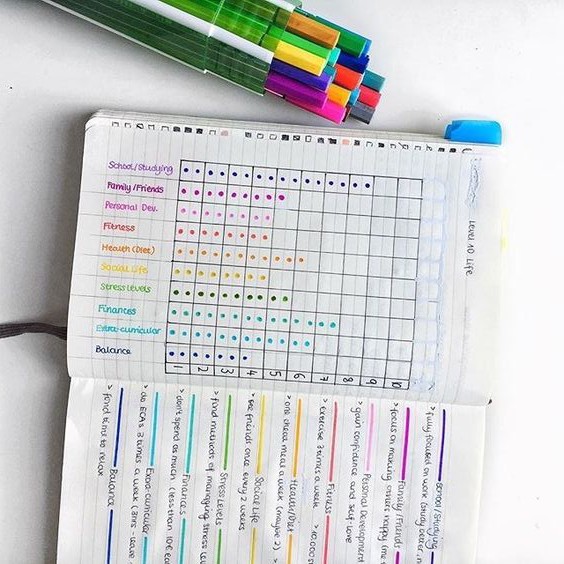 Level 10 Life
School/Studying
Family/Friends
Personal Dev.
Fitness
Health (Diet)
Social Life
Stress Levels
Finances
Extra-curricular
Balance
1 2 3 4 5 6 7 8 9 10
School/Studying
> fully focused on work (study better
Family/Friends
> focus on making others happy (me
Personal Development
> gain confidence and self-love
Fitness
> exercise 3 times a week > 10,000 s
Health/Diet
> one cheat meal a week (maybe 2)
Social Life
> see friends once every 2 weeks
Stress Levels
> find methods of managing stress leve
Finances
> don't spend as much (less than 10€
Extra-curricular
> do ECAs 3 times a week (3hrs - leave
Balance
> find time to relax